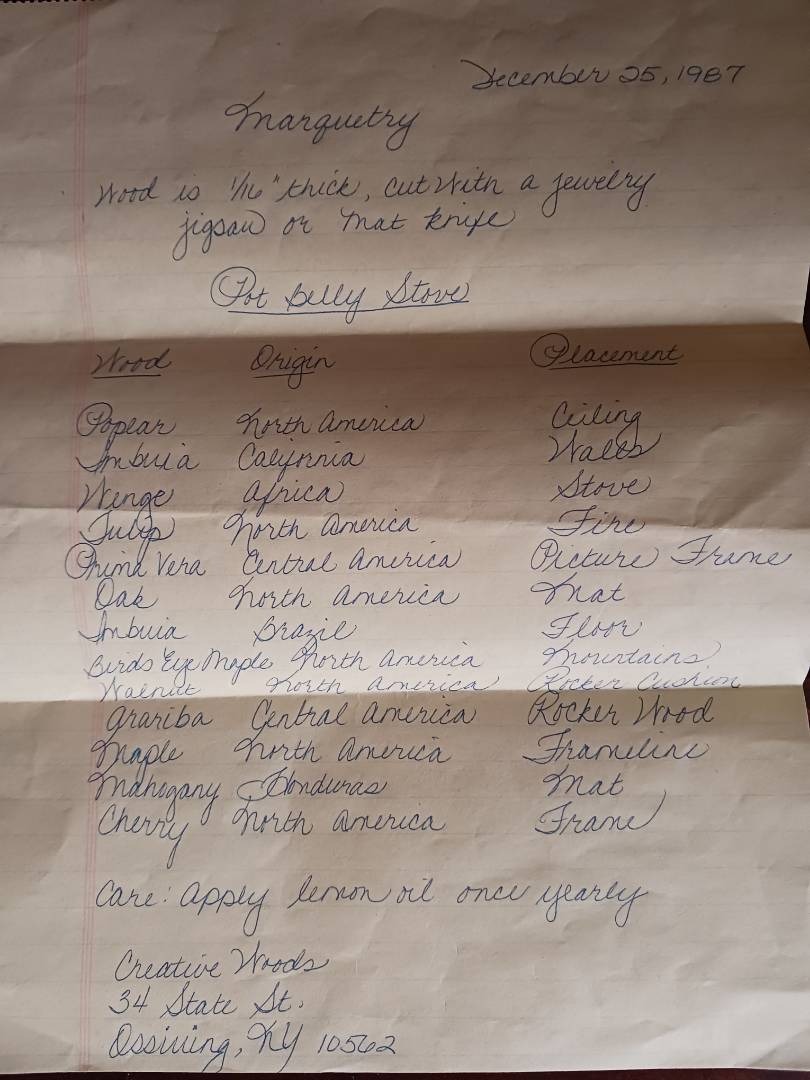 December 25, 1987
Marquetry
Wood is 1/16" thick, cut with a jewelry
jigsaw or mat knife
Pot Belly Stove
Wood Origin Placement
Poplar North America Ceiling
Imbuia California Walls
Wenge Africa Stove
Tulip North America Fire
Prima Vera Central America Picture Frame
Oak North America Mat
Imbuia Brazil Floor
Birds Eye Maple North America Mountains
Walnut North America Rocker Cushion
Arariba Central America Rocker Wood
Maple North America Frameline
Mahogany Honduras Mat
Cherry North America Frame
Care: Apply lemon oil once yearly
Creative Woods
34 State St.
Ossining, NY 10562